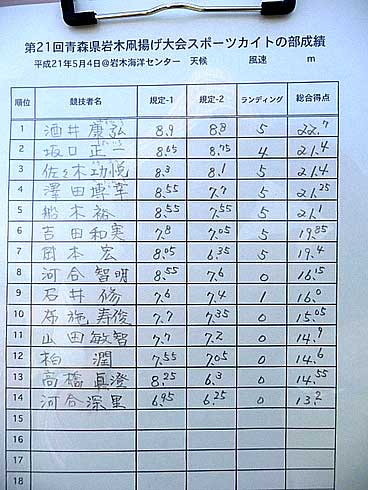 第21回青森県岩木凧揚げ大会スポーツカイトの部成績
平成21年5月4日@岩木海洋センター 天候 風速 m
順位 競技者名 規定-1 規定-2 ランディング 総合得点
1 酒井康弘 8.9 8.8 5 22.7
2 坂口正一 8.65 8.75 4 21.4
3 佐々木功悦 8.3 8.1 5 21.4
4 澤田博幸 8.55 7.7 5 21.25
5 船木裕 8.55 7.55 5 21.1
6 吉田和実 7.8 7.05 5 19.85
7 岡本宏 8.05 6.35 5 19.4
8 河合智明 8.55 7.6 0 16.15
9 石井修 7.6 7.4 1 16.0
10 布施寿俊 7.7 7.35 0 15.05
11 山田敏智 7.7 7.2 0 14.9
12 柏潤 7.55 7.05 0 14.6
13 高橋真澄 8.25 6.3 0 14.55
14 河合深里 6.95 6.25 0 13.2
15
16
17
18